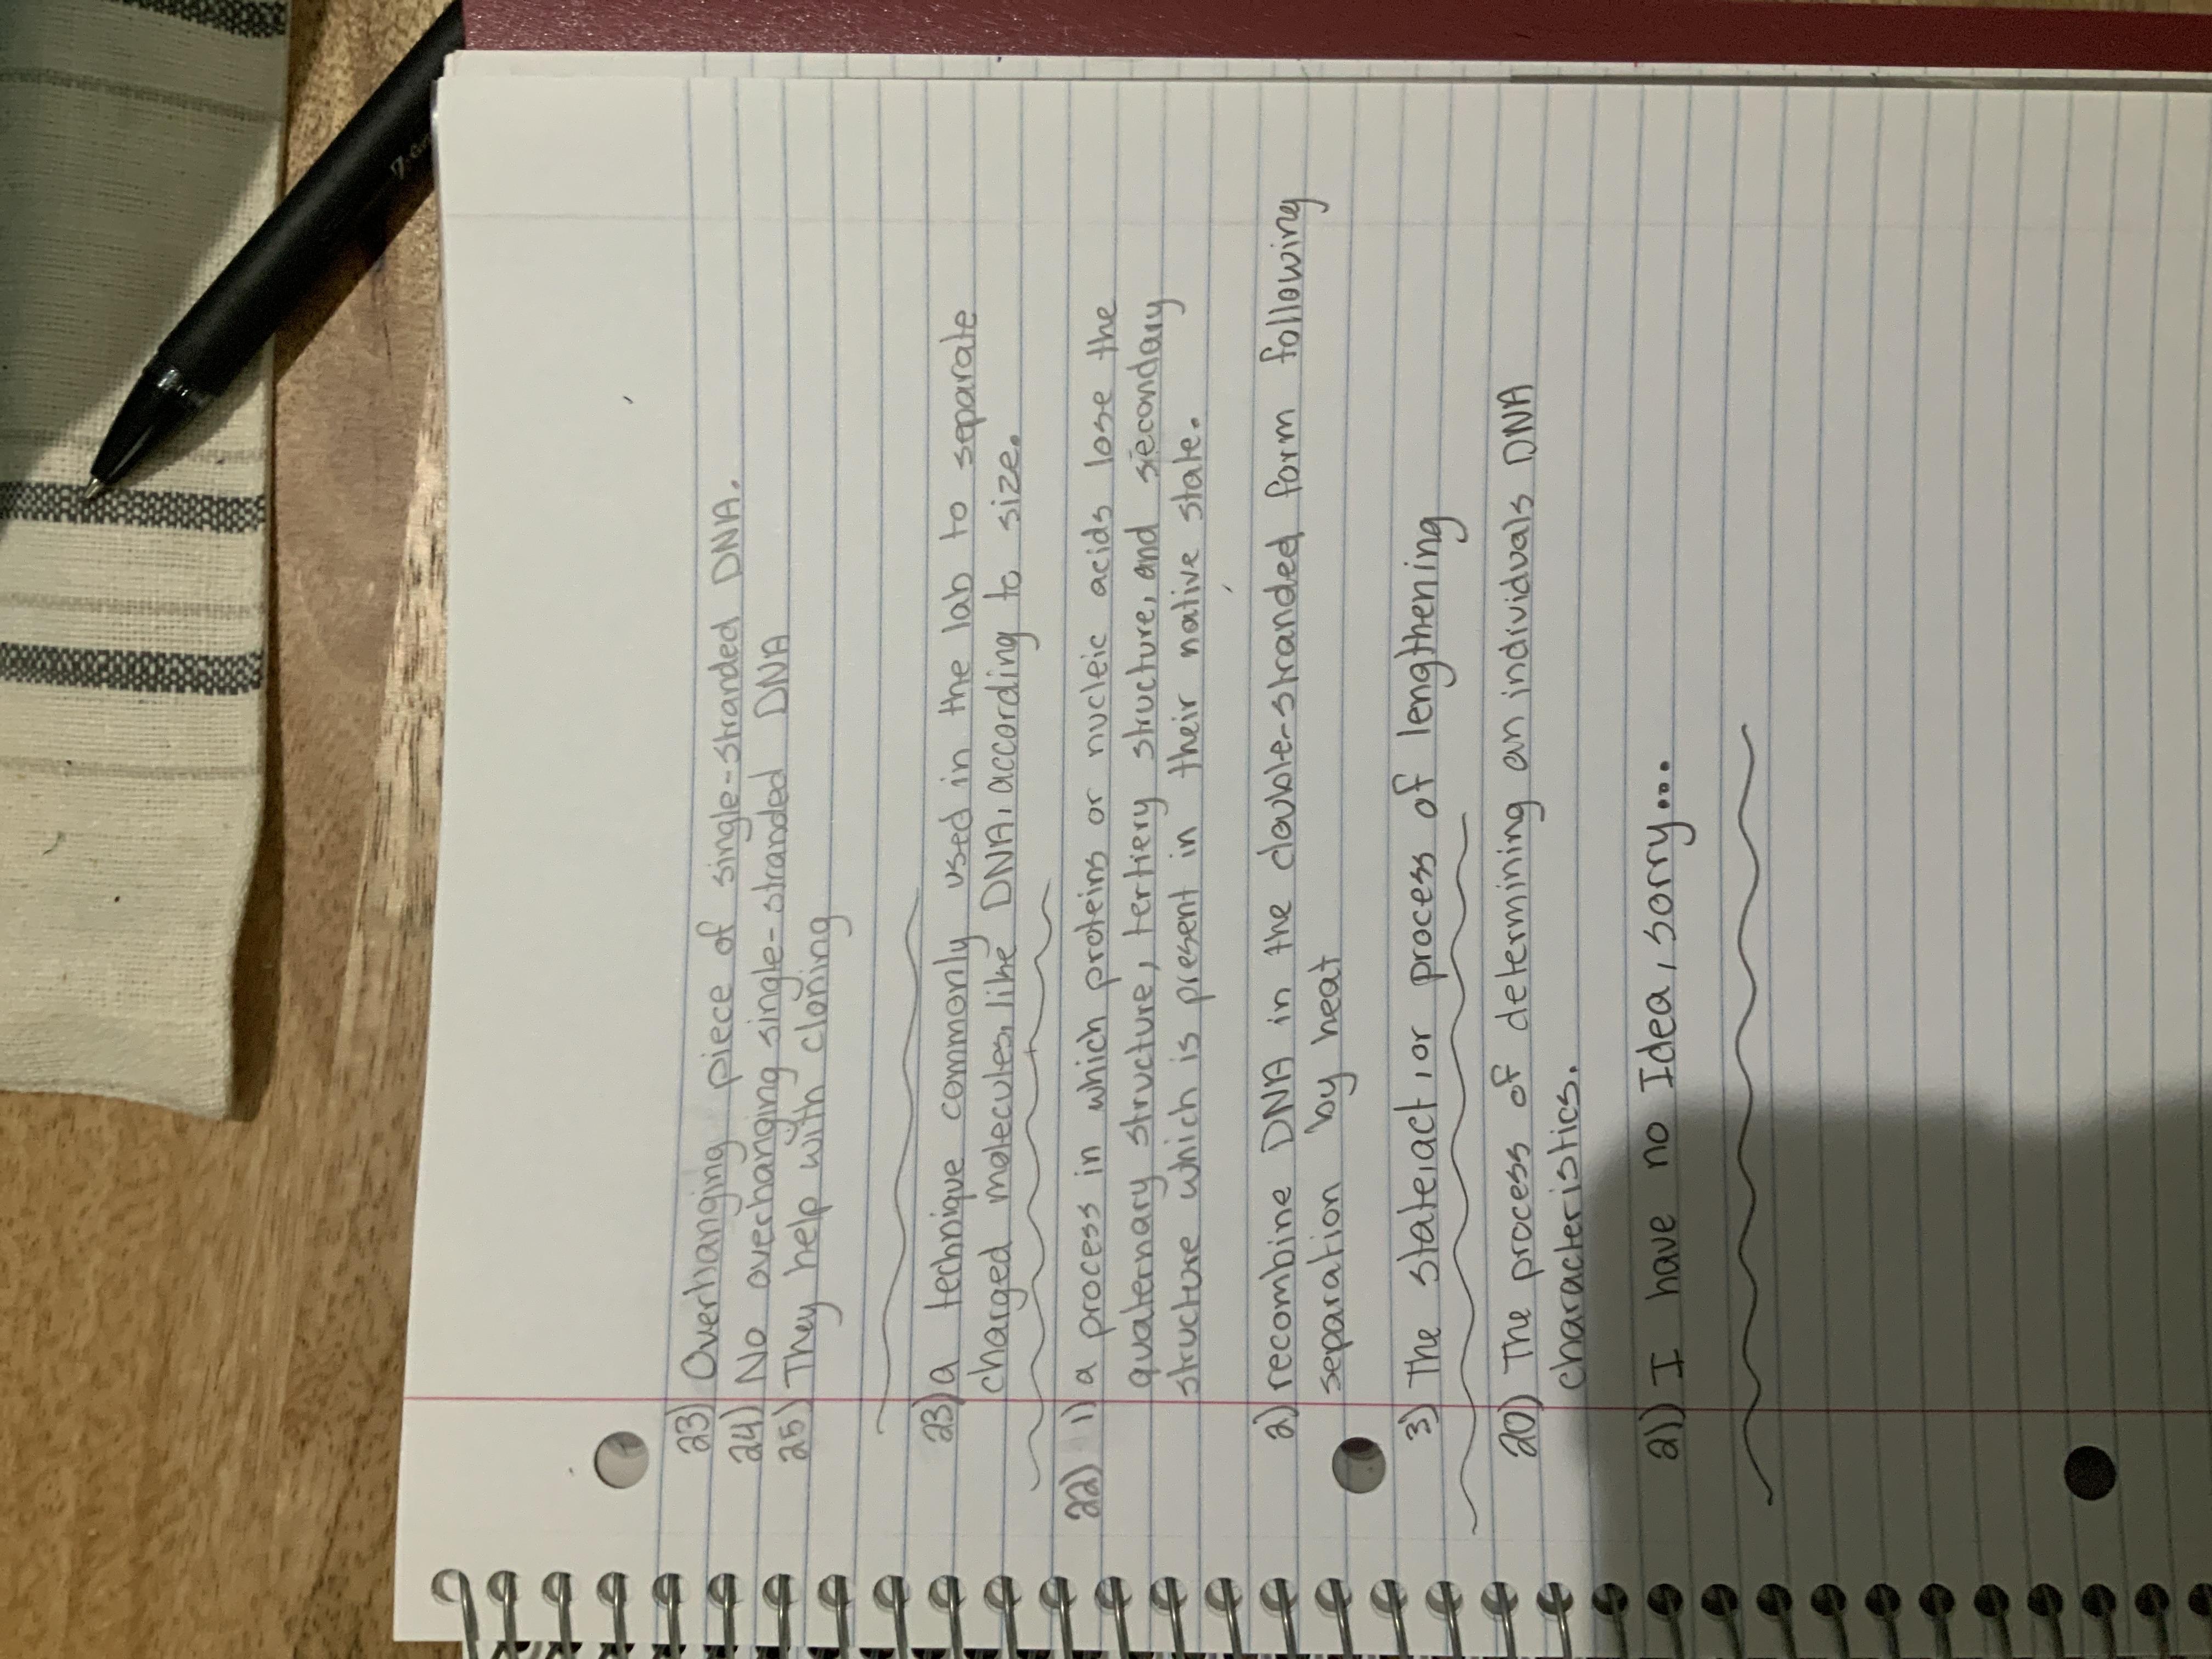 23) Overhanging piece of single-stranded DNA.
24) No overchanging single-stranded DNA
25) They help with cloning
23) a technique commonly used in the lab to separate
charged molecules, like DNA, according to size.
22) 1) a process in which proteins or nucleic acids lose the
quaternary structure, tertiery structure, and secondary
structure which is present in their native state.
2) recombine DNA in the double-stranded form following
separation by heat
3) The state, act, or process of lengthening
20) The process of determining an individuals DNA
characteristics.
21) I have no Idea, sorry...